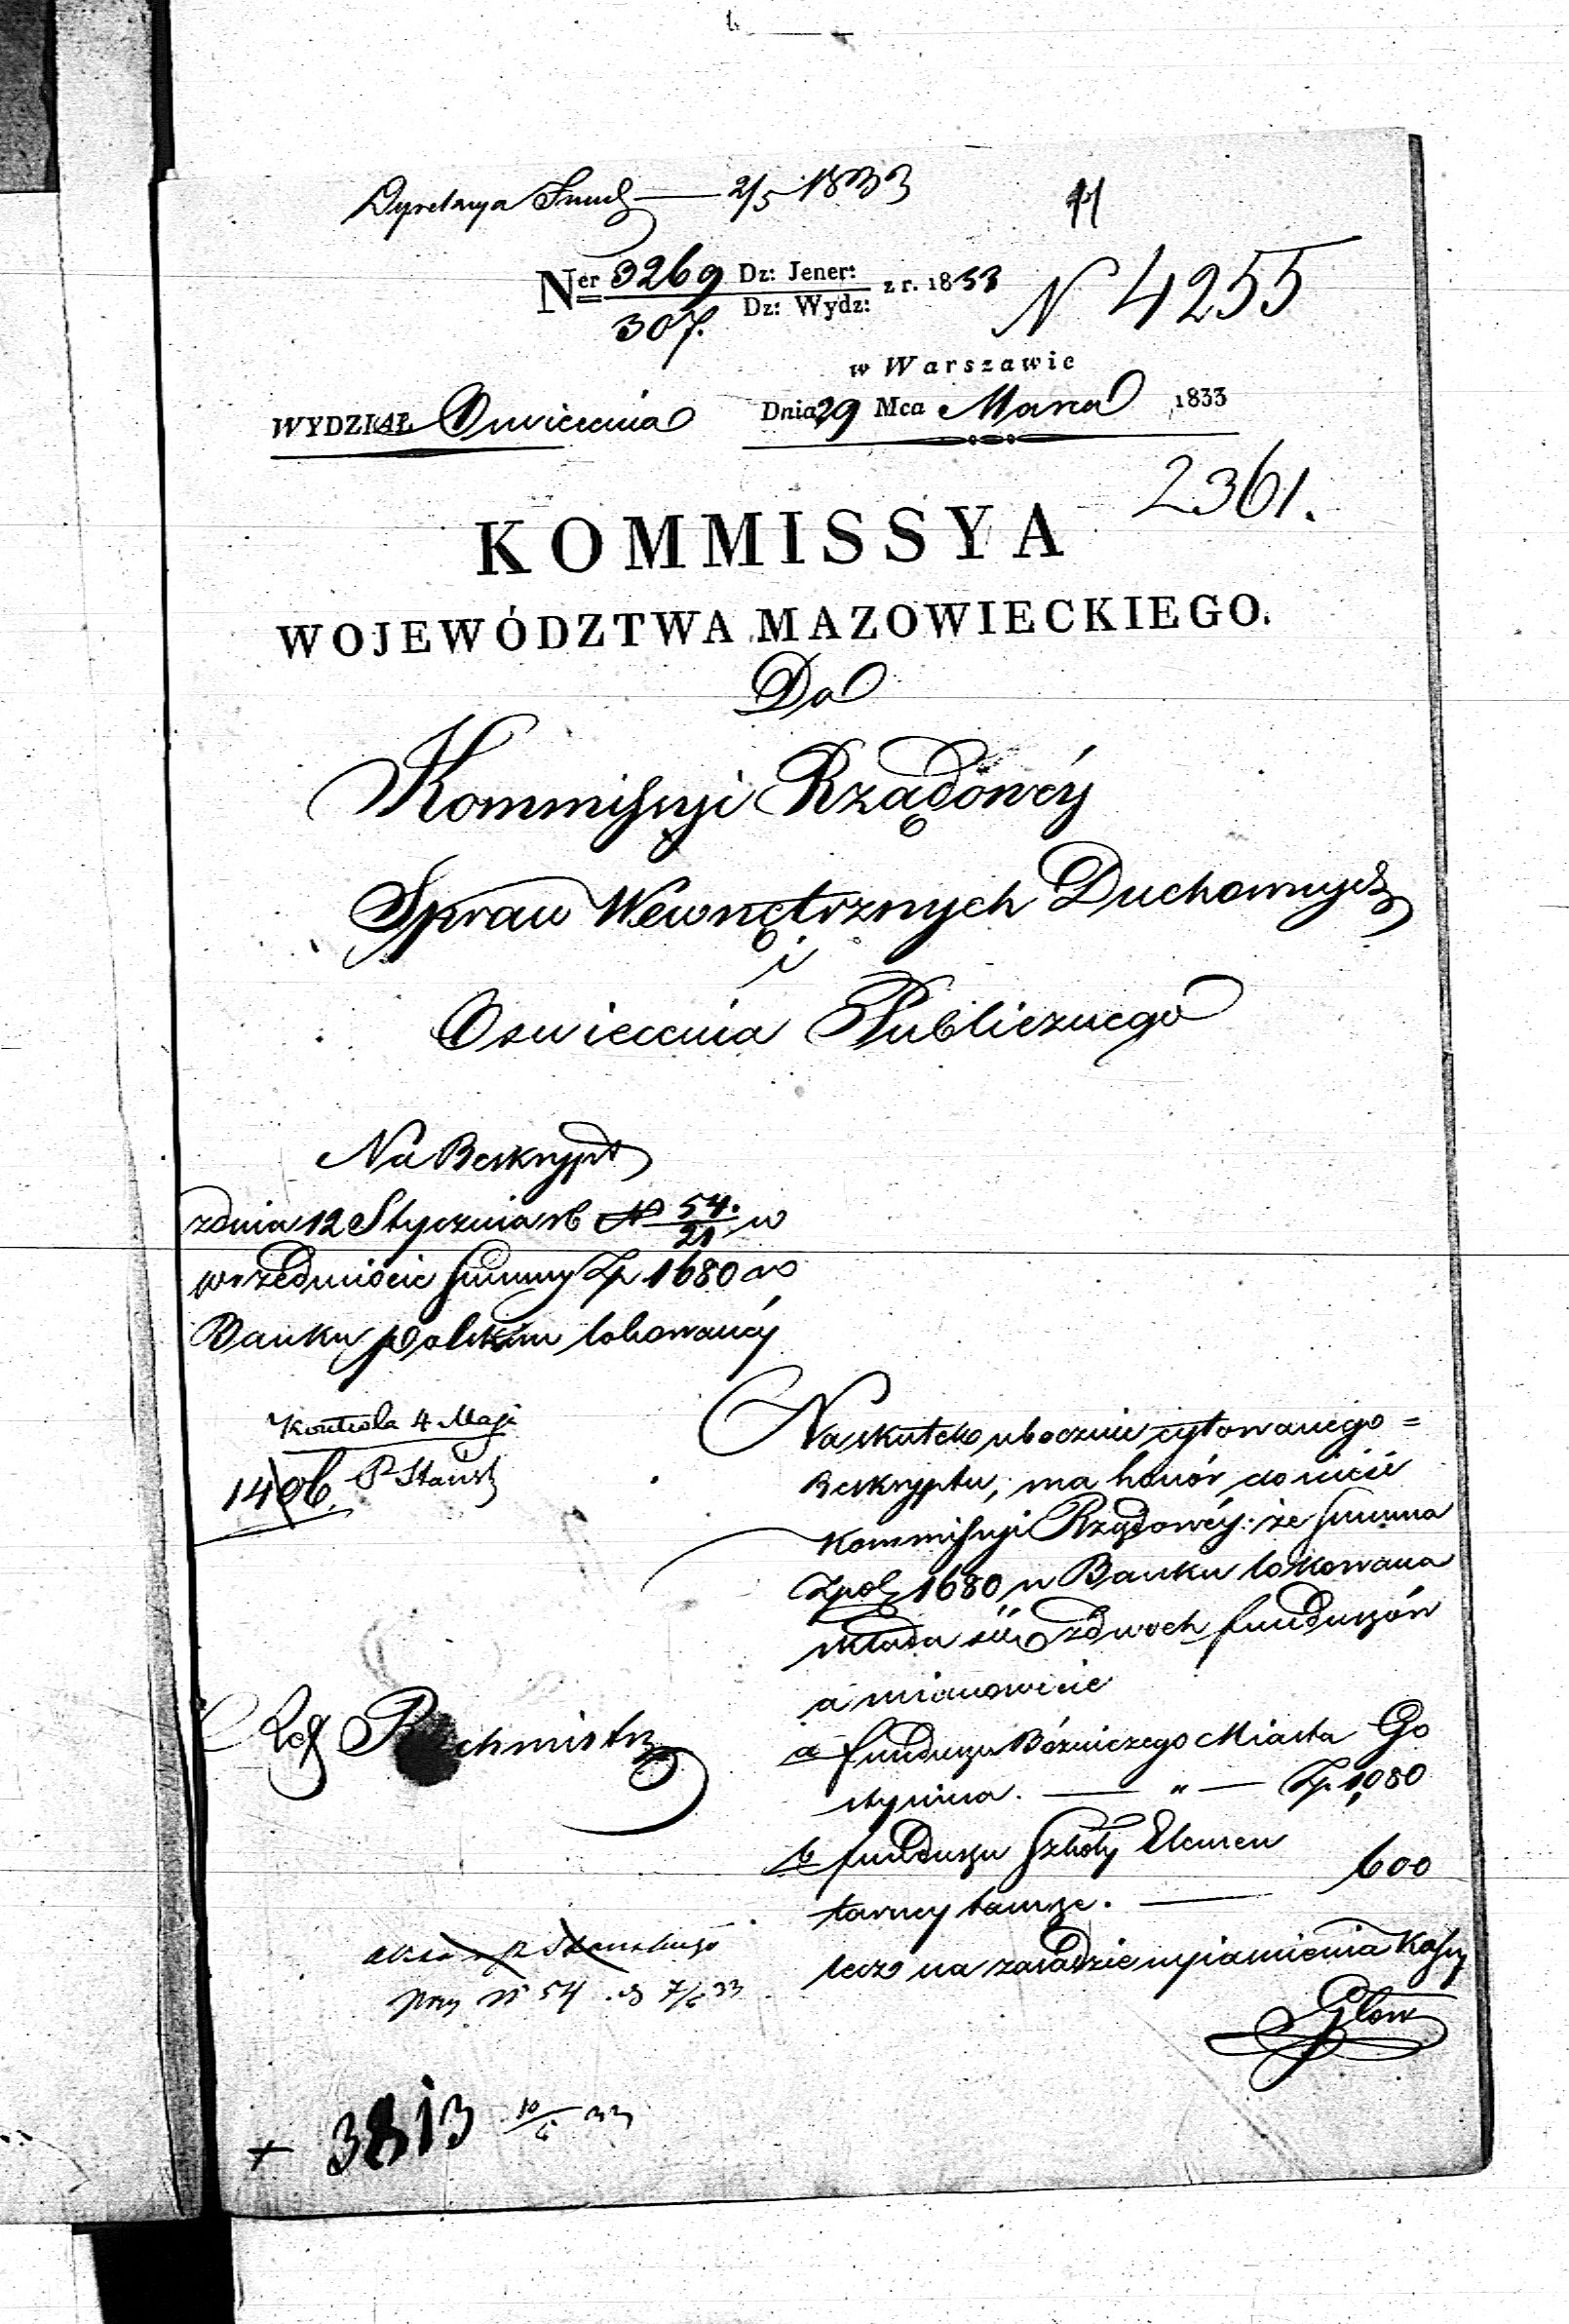 2/5 1833
11
Ner 3269 Dz: Jener: z r. 1833 N 4255
307. Dz: Wydz:
w Warszawie
WYDZIAŁ Oswiecenia Dnia 29 Mca Marca 1833
2361.
KOMMISSYA
WOJEWÓDZTWA MAZOWIECKIEGO.
Do
Kommissyi Rządowéy
Spraw Wewnętrznych Duchownych
i
Oswiecenia Publicznego
Na Reskrypt
z dnia 12 Stycznia rb N 54./21 w
przedmiocie Summy Zp 1680 w
Banku polskim lokowanéy
Kontrola 4 Maja
1406.
Na skutek ubocznie cytowanego=
Reskryptu, ma honór donieść
Kommissyi Rządowéy: że Summa
Zpol 1680 w Banku lokowana
składa się z dwoch funduszów
a mianowicie
a funduszu Bózniczego Miasta Go
stynina. — " — Zp. 1,080
b funduszu Szkoły Elemen
tarney tamże. — 600
lecz na zasadzie wyiasnienia Kassy
Rachmistrz
N 54
Głow
+ 3813 10/4 33